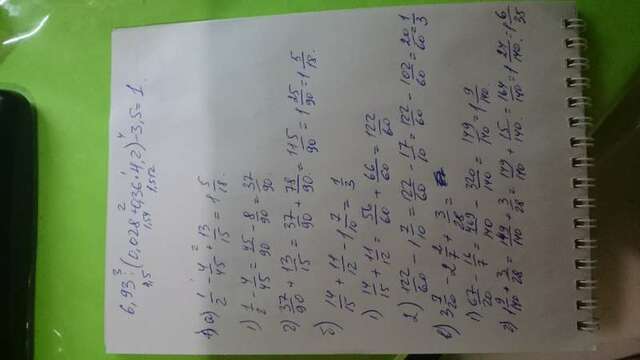 6,93 : (0,028 + 0,36 · 4,2) - 3,5 = 1.
4,5 1,54 1,512
1) а) 1/2 - 4/45 + 13/15 = 1 5/18.
1) 1/2 - 4/45 = 45/90 - 8/90 = 37/90.
2) 37/90 + 13/15 = 37/90 + 78/90 = 115/90 = 1 25/90 = 1 5/18.
б) 14/15 + 11/12 - 1 7/10 = 1/3
1) 14/15 + 11/12 = 56/60 + 66/60 = 122/60
2) 122/60 - 1 7/10 = 122/60 - 17/10 = 122/60 - 102/60 = 20/60 = 1/3
в) 3 7/20 - 2 2/7 + 3/28 =
1) 67/20 - 16/7 = 469/140 - 320/140 = 149/140 = 1 9/140.
2) 1 9/140 + 3/28 = 149/140 + 3/28 = 149/140 + 15/140 = 164/140 = 1 24/140 = 1 6/35